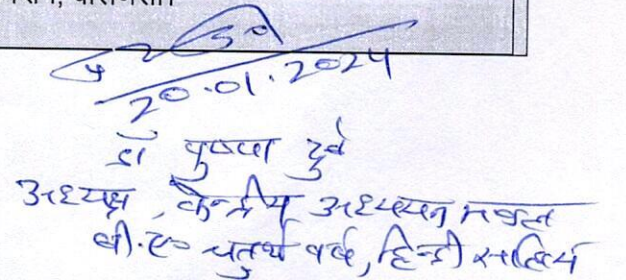 20.01.2024
डॉ पुष्पा दुबे
अध्यक्ष, केन्द्रीय अध्ययन मण्डल
बी.ए. चतुर्थ वर्ष, हिन्दी साहित्य